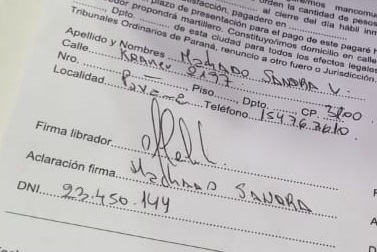 orden la cantidad de pesos
satisfacción, pagadero en
al cierre del día hábil inm
plazo de presentación para el pago de este pagaré h
propondrá martillero. Constituyo/imos domicilio en calle
Dpto. de esta ciudad para todos los efectos legales
Tribunales Ordinarios de Paraná, renuncio a otro fuero o Jurisdicción.
Apellido y Nombres Machado Sandra V.
Calle
Nro. 2197 Piso Dpto. CP. 3200
Localidad Teléfono
Firma librador
Aclaración firma Machado SANDRA
DNI 23.450.144